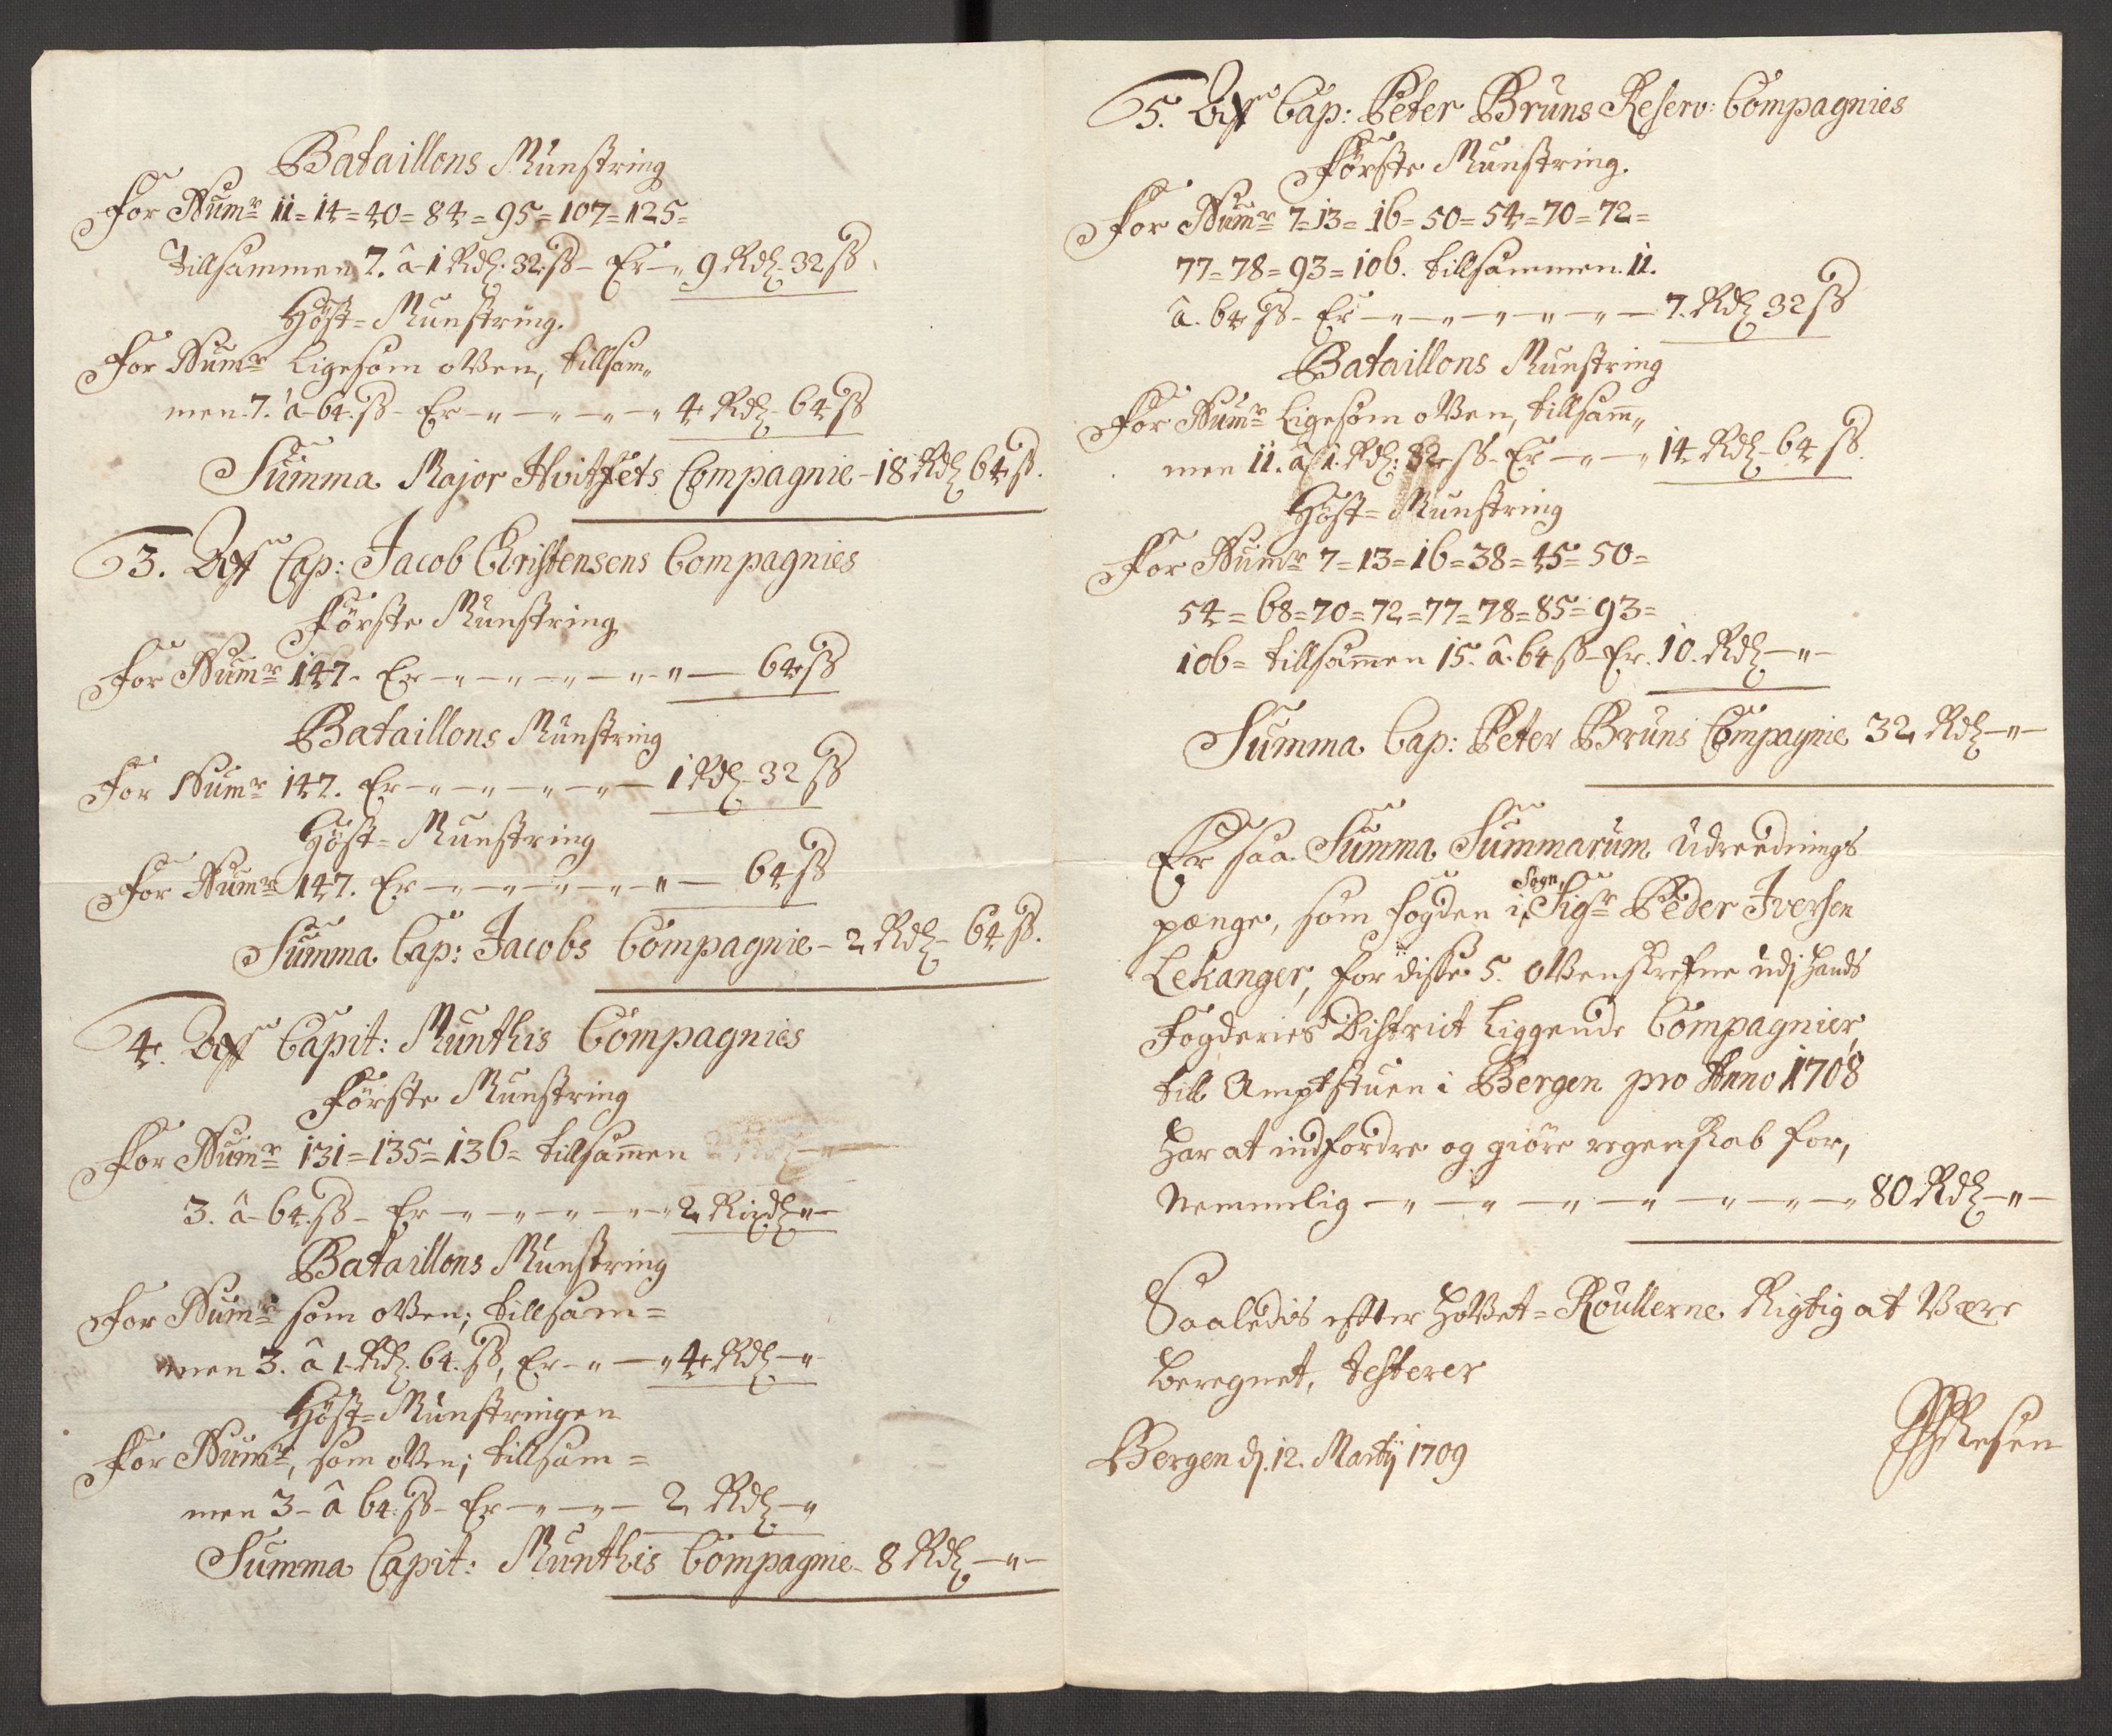 Bataillons Munstring
For Numr 11=14=40=84=95=107=125=
tillsammen 7. â 1 Rdl: 32 ss– Er–„ 9 Rdl–32 ss
Höst=Munstring.
For Numr ligesom oVen, tillsam„
men 7. â 64. ss– Er–„–„–„–„ 4 Rdl–64 ss
Summa Major Hvitfets Compagnie–18 Rdl 64 ss.
3. Aff Cap: Jacob Christensens Compagnies
Förste Munstring
For Numr 147– Er–„–„–„–„–„– 64 ss
Bataillons Munstring
For Numr 147. Er–„–„–„–„– 1 Rdl–32 ss
Höst=Munstring
For Numr 147. Er–„–„–„–„–„– 64 ss
Summa Cap: Jacobs Compagnie–2 Rdl–64 ss.
4. Aff Capit: Munthis Compagnies
Förste Munstring
For Numr 131=135=136= tillsamen
3. â 64. ss– Er–„–„–„–„–„ 2 Rixdl„–
Bataillons Munstring
For Numr som oVen; tillsam=
men 3. â 1–Rdl. 64. ss, Er–„–„ 4 Rdl–„
Höst=Munstringen
For Numr, som oVen; tillsam=
men 3– â 64. ss– Er–„–„– 2 Rdl–„
Summa Capit: Munthis Compagnie–8 Rdl–„–
5. Aff Cap: Peter Bruns Reserv: Compagnies
Förste Munstring.
For Numr 7=13=16=50=54=70=72=
77=78=93=106. tillsammen 11.
â. 64 ss– Er–„–„–„–„–„– 7. Rdl 32 ss
Bataillons Munstring
For Numr ligesom oVen, tillsam„
men 11. â 1. Rdl: 32 ss– Er–„–„ 14 Rdl–64 ss.
Höst=Munstring
For Numr 7=13=16=38=45=50=
54=68=70=72=77=78=85=93=
106= tillsamen 15. â. 64 ss–Er. 10. Rdl–„–
Summa Cap: Peter Bruns Compagnie 32 Rdl–„–
Er saa Summa Summarum Udreednings
penge, som fogden i Sogn, Sigr Peder Iversen
Lekanger, for disse 5. oVenskrefne udj hands
Fogderies District liggende Compagnier,
till Amptstuen i Bergen pro Anno 1708
har at indfordre og giöre regenskab for,
Nemmlig–„–„–„–„–„–„–„ 80 Rdl–„–
Saaledis efter hoVet=Roullerne Rigtig at Være
beregnet, testerer
Bergen dj. 12. Martij 1709